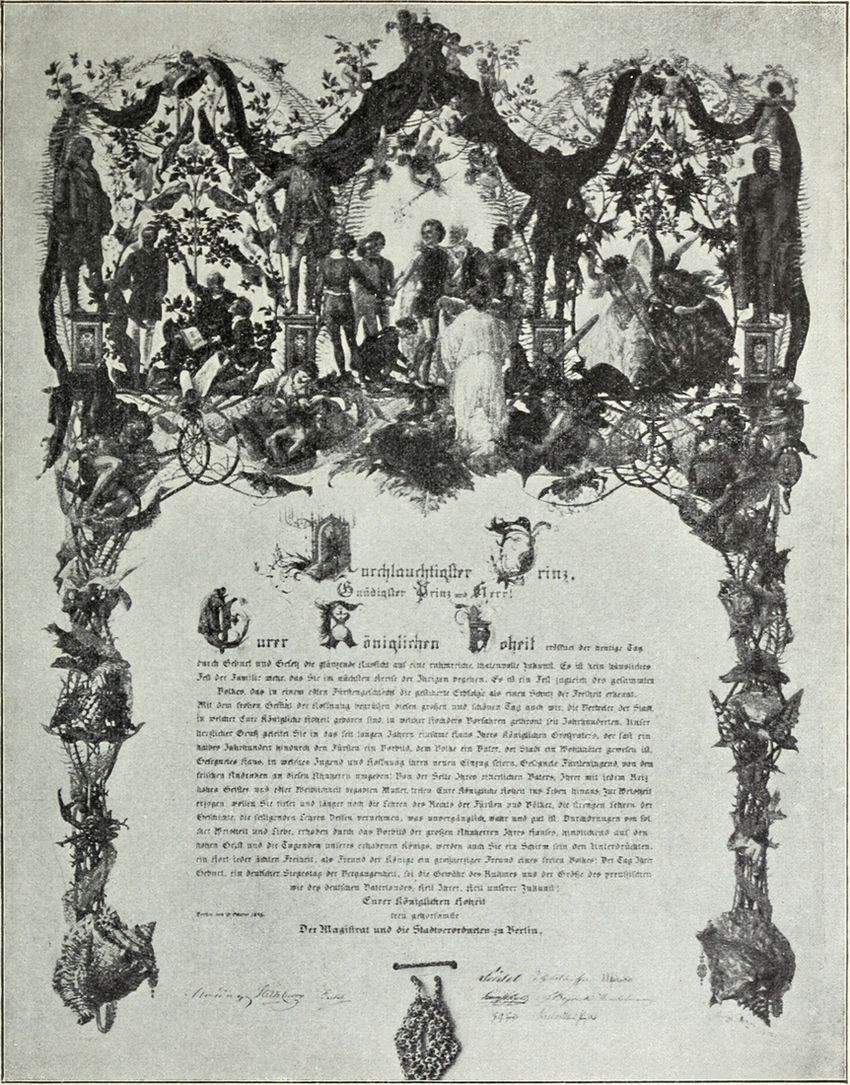 Durchlauchtigster Prinz,
Gnädigster Prinz und Herr!
Eurer Königlichen Hoheit eröffnet der heutige Tag
durch Geburt und Gesetz die glänzende Aussicht auf eine ruhmreiche, thatenvolle Zukunft. Es ist kein häusliches
Fest der Familie mehr, das Sie im nächsten Kreise der Ihrigen begehen. Es ist ein Fest zugleich des gesammten
Volkes, das in einem edlen Fürstengeschlecht die gesicherte Erbfolge als einen Schutz der Freiheit erkennt.
Mit dem frohen Gefühl der Hoffnung begrüßen diesen großen und schönen Tag auch wir, die Vertreter der Stadt,
in welcher Eure Königliche Hoheit geboren sind, in welcher Höchstdero Vorfahren gethront seit Jahrhunderten. Unser
herzlicher Gruß geleitet Sie in das seit langen Jahren einsame Haus Ihres Königlichen Großvaters, der fast ein
halbes Jahrhundert hindurch den Fürsten ein Vorbild, dem Volke ein Vater, der Stadt ein Wohlthäter gewesen ist.
Gesegnetes Haus, in welches Jugend und Hoffnung ihren neuen Einzug feiern, Gesegnete Fürstenjugend, von den
seligen Andenken an diesen Ahnherrn umgeben! Von der Seite Ihres ritterlichen Vaters, Ihrer mit jedem Reiz
hohen Geistes und edler Weiblichkeit begabten Mutter, treten Eure Königliche Hoheit ins Leben hinaus. Zur Weisheit
erzogen, wollen Sie tiefer und länger noch die Lehren des Rechts der Fürsten und Völker, die strengen Lehren der
Geschichte, die beseligenden Lehren Dessen vernehmen, was unvergänglich, wahr und gut ist. Durchdrungen von sol
cher Weisheit und Liebe, erhoben durch das Vorbild der großen Ahnherren Ihres Hauses, hinblickend auf den
hohen Geist und die Tugenden unseres erhabenen Königs, werden auch Sie ein Schirm sein den Unterdrückten,
ein Hort jeder ächten Freiheit, als Freund der Könige ein großherziger Freund eines freien Volkes! Der Tag Ihrer
Geburt, ein deutscher Siegestag der Vergangenheit, sei die Gewähr des Ruhmes und der Größe des preußischen
wie des deutschen Vaterlandes, Heil Ihrer, Heil unserer Zukunft!
Eurer Königlichen Hoheit
treu gehorsamste
Berlin, den Oktober
Der Magistrat und die Stadtverordneten zu Berlin.